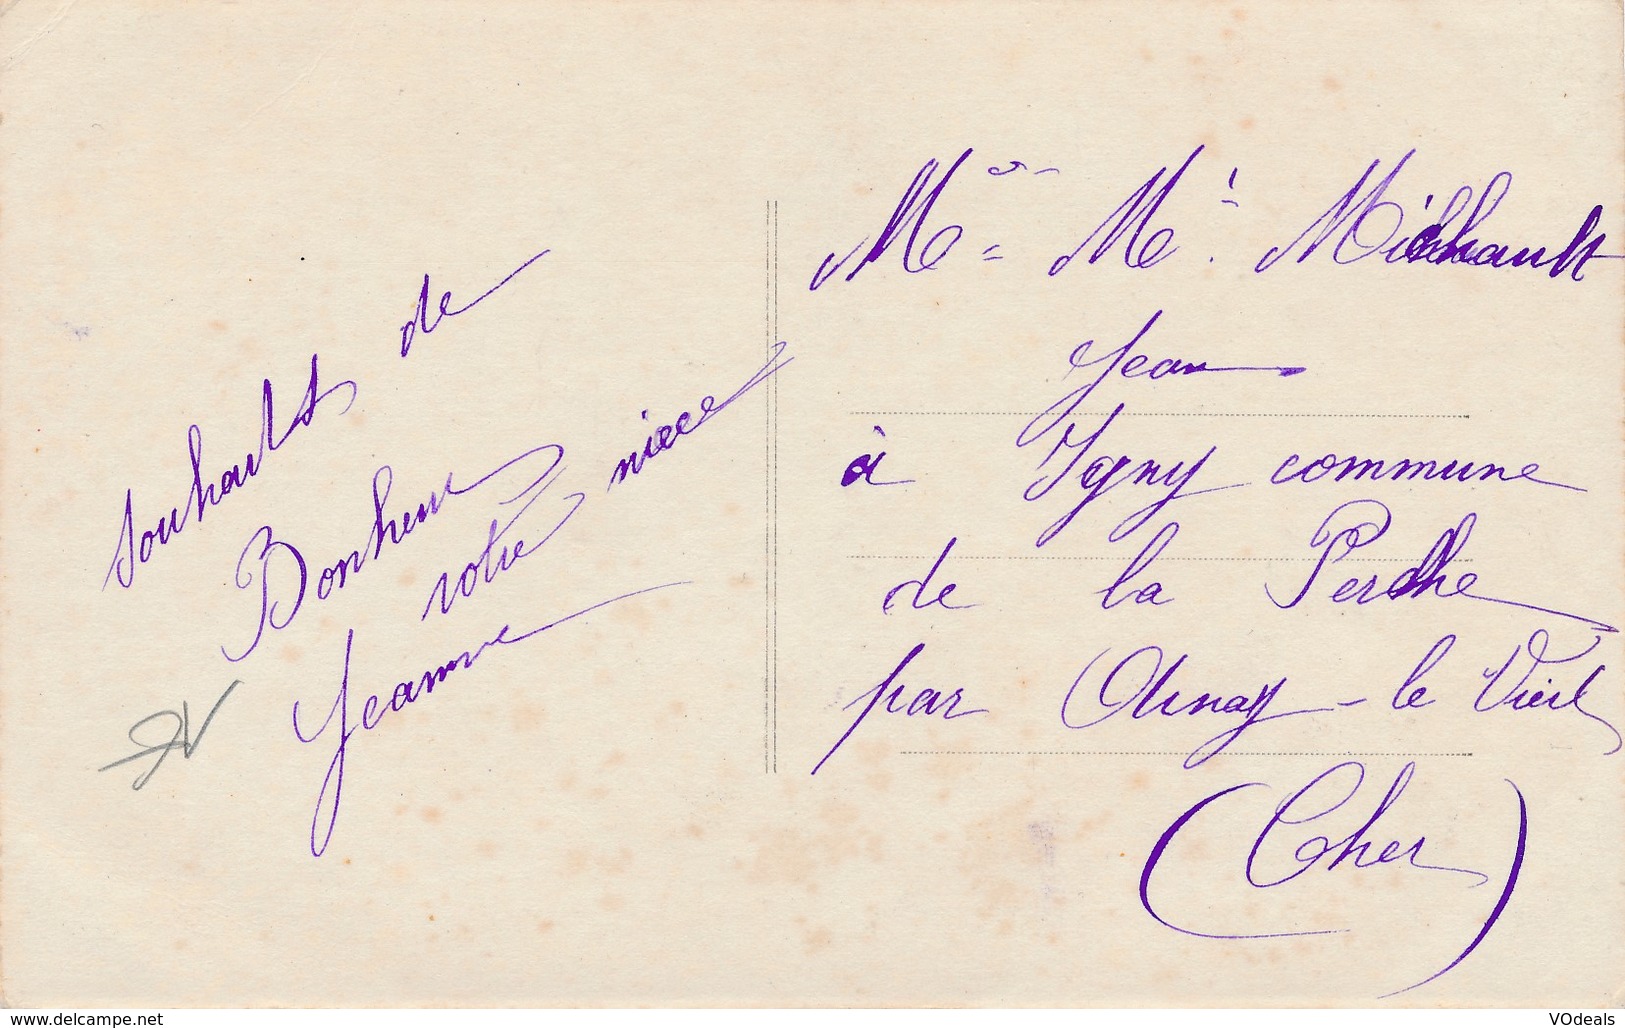 souhaits de
Bonheur
votre nièce
Jeanne
Mr. Me. Michault
Jean
à Igny commune
de la Perche
par Ainay-le Vieil
(Cher)
www.delcampe.net
VOdeals